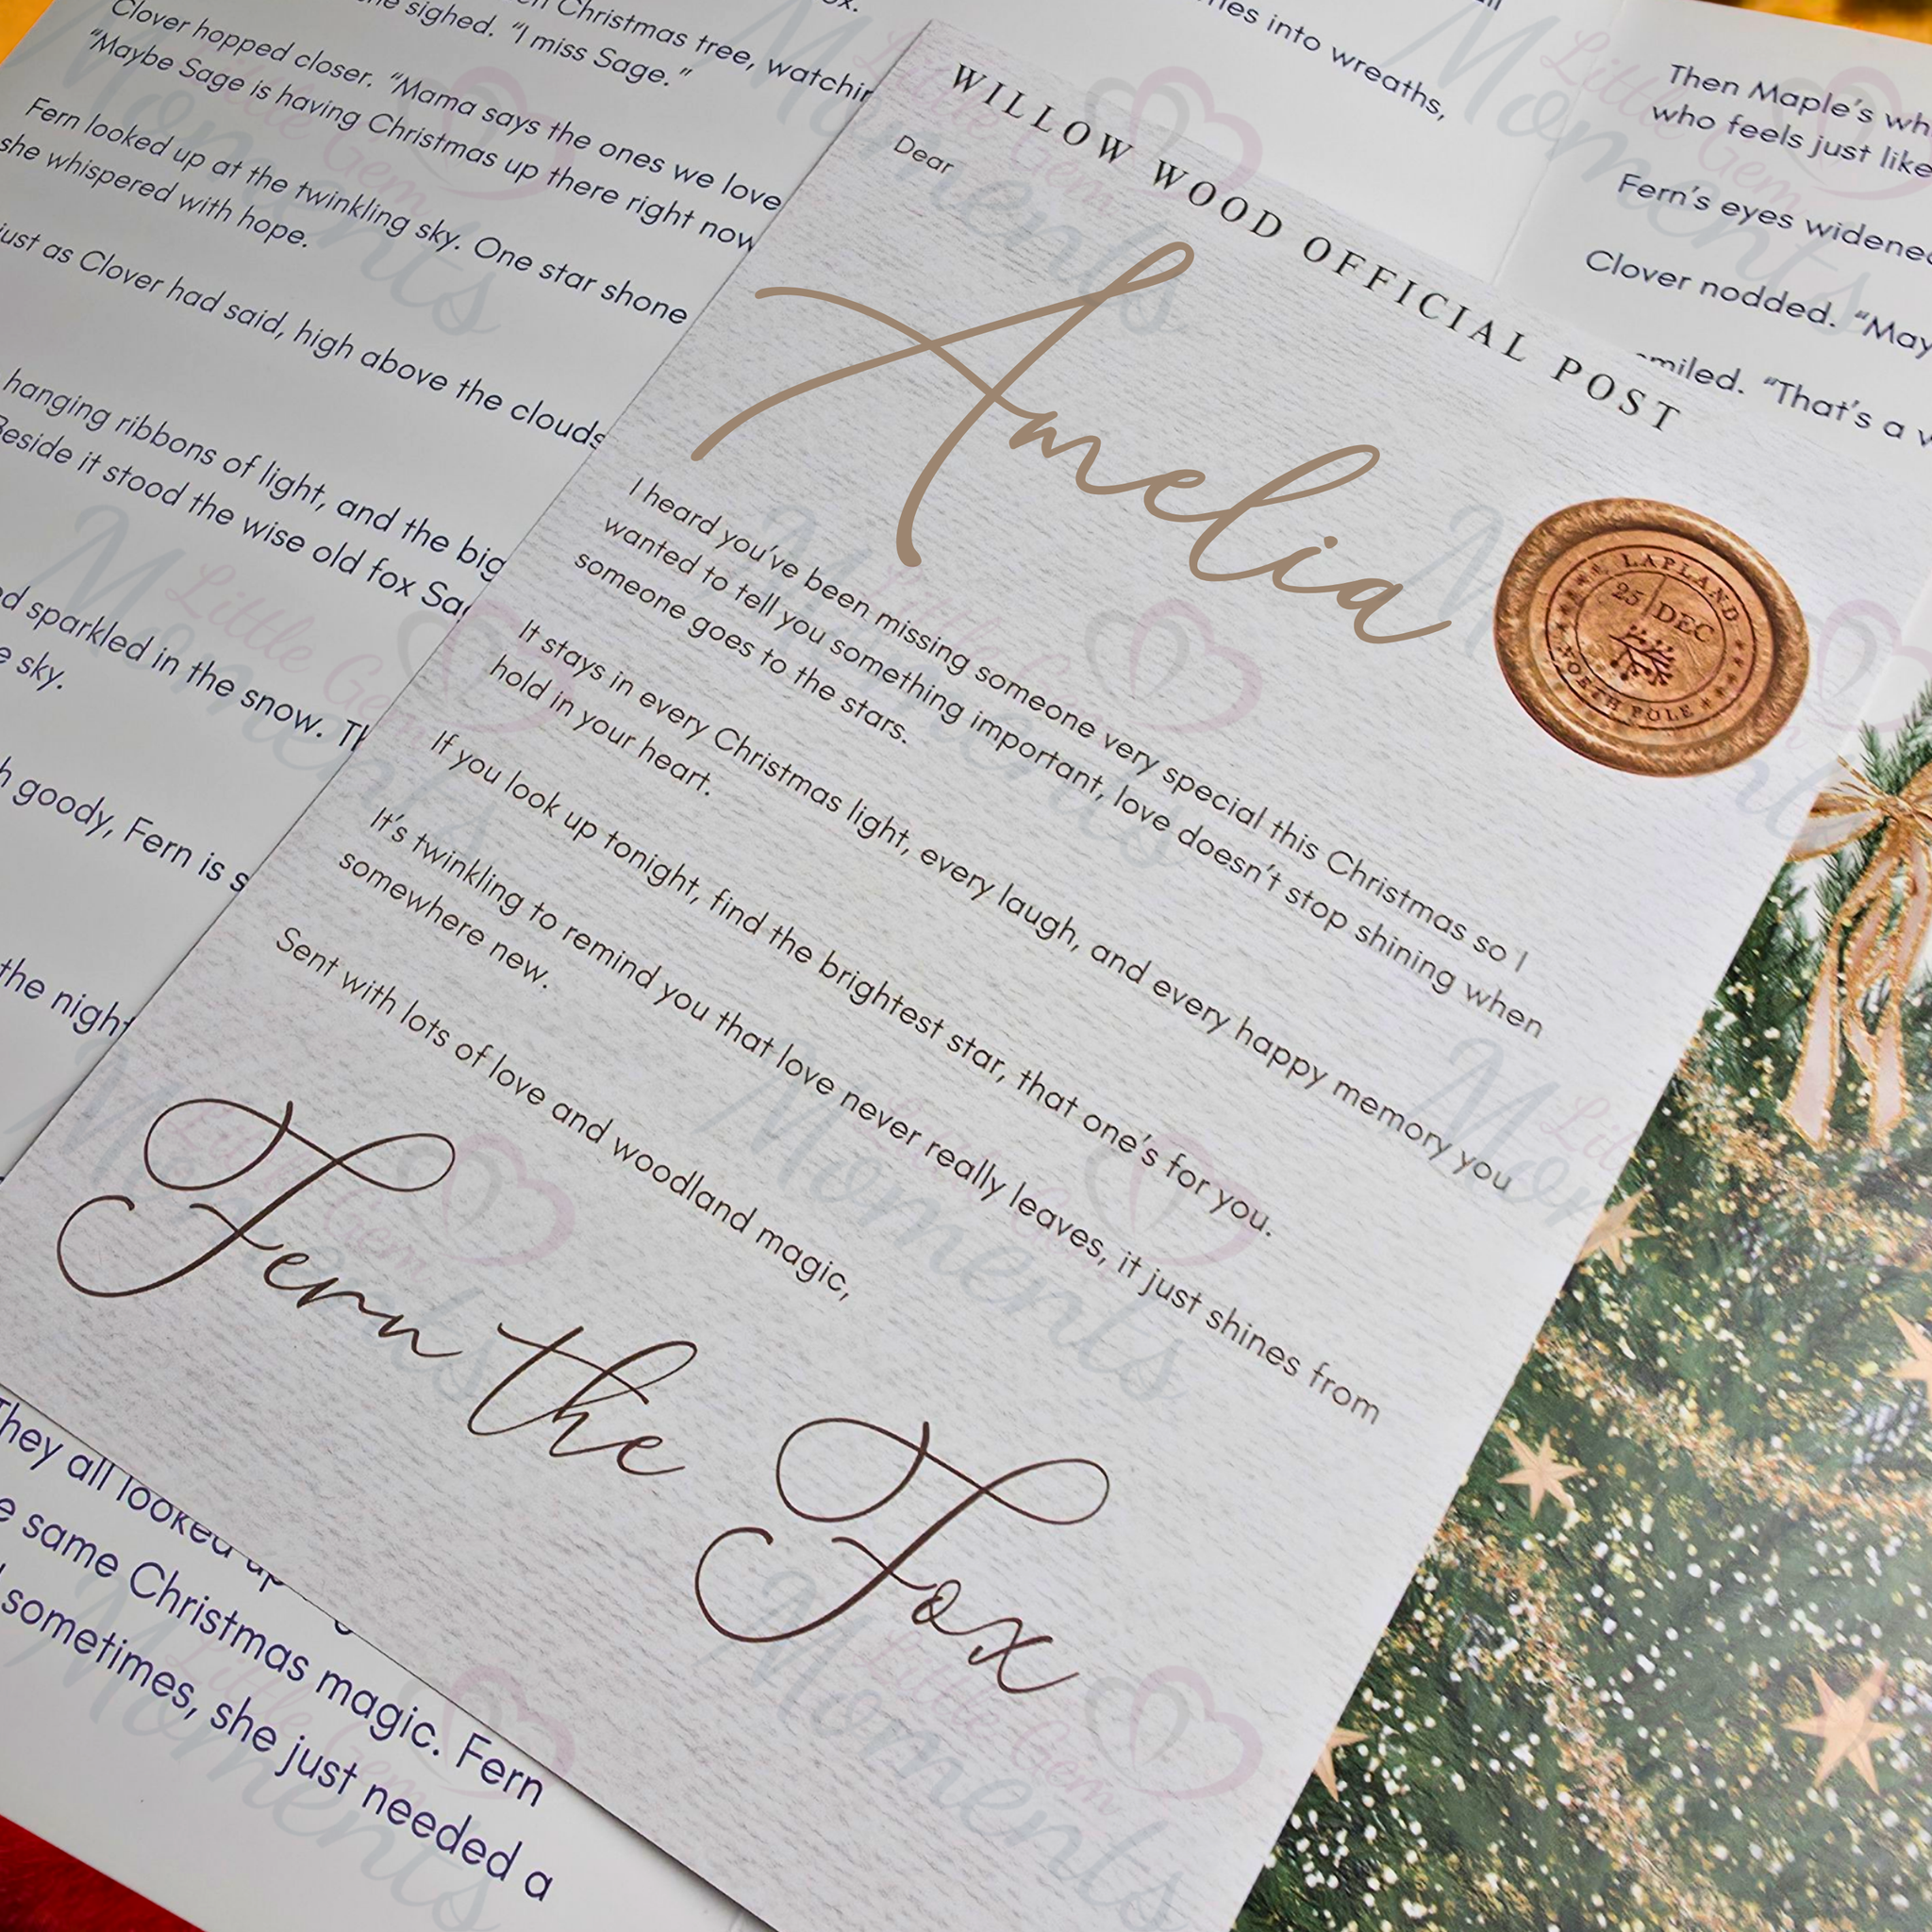 Christmas tree, watchin
she sighed. "I miss Sage."
Clover hopped closer. "Mama says the ones we love
"Maybe Sage is having Christmas up there right now
Fern looked up at the twinkling sky. One star shone
she whispered with hope.
just as Clover had said, high above the clouds
hanging ribbons of light, and the big
Beside it stood the wise old fox Sag
sparkled in the snow. Th
sky.
goody, Fern is s
the night
They all looked up
same Christmas magic. Fern
sometimes, she just needed a
into wreaths,
Then Maple's wh
who feels just like
Fern's eyes widened
Clover nodded. "May
smiled. "That's a v
WILLOW WOOD OFFICIAL POST
Dear
Amelia
LAPLAND
25 DEC
NORTH POLE
I heard you've been missing someone very special this Christmas so I
wanted to tell you something important, love doesn't stop shining when
someone goes to the stars.
It stays in every Christmas light, every laugh, and every happy memory you
hold in your heart.
If you look up tonight, find the brightest star, that one's for you.
It's twinkling to remind you that love never really leaves, it just shines from
somewhere new.
Sent with lots of love and woodland magic,
Fern the Fox
Little Gem
Moments